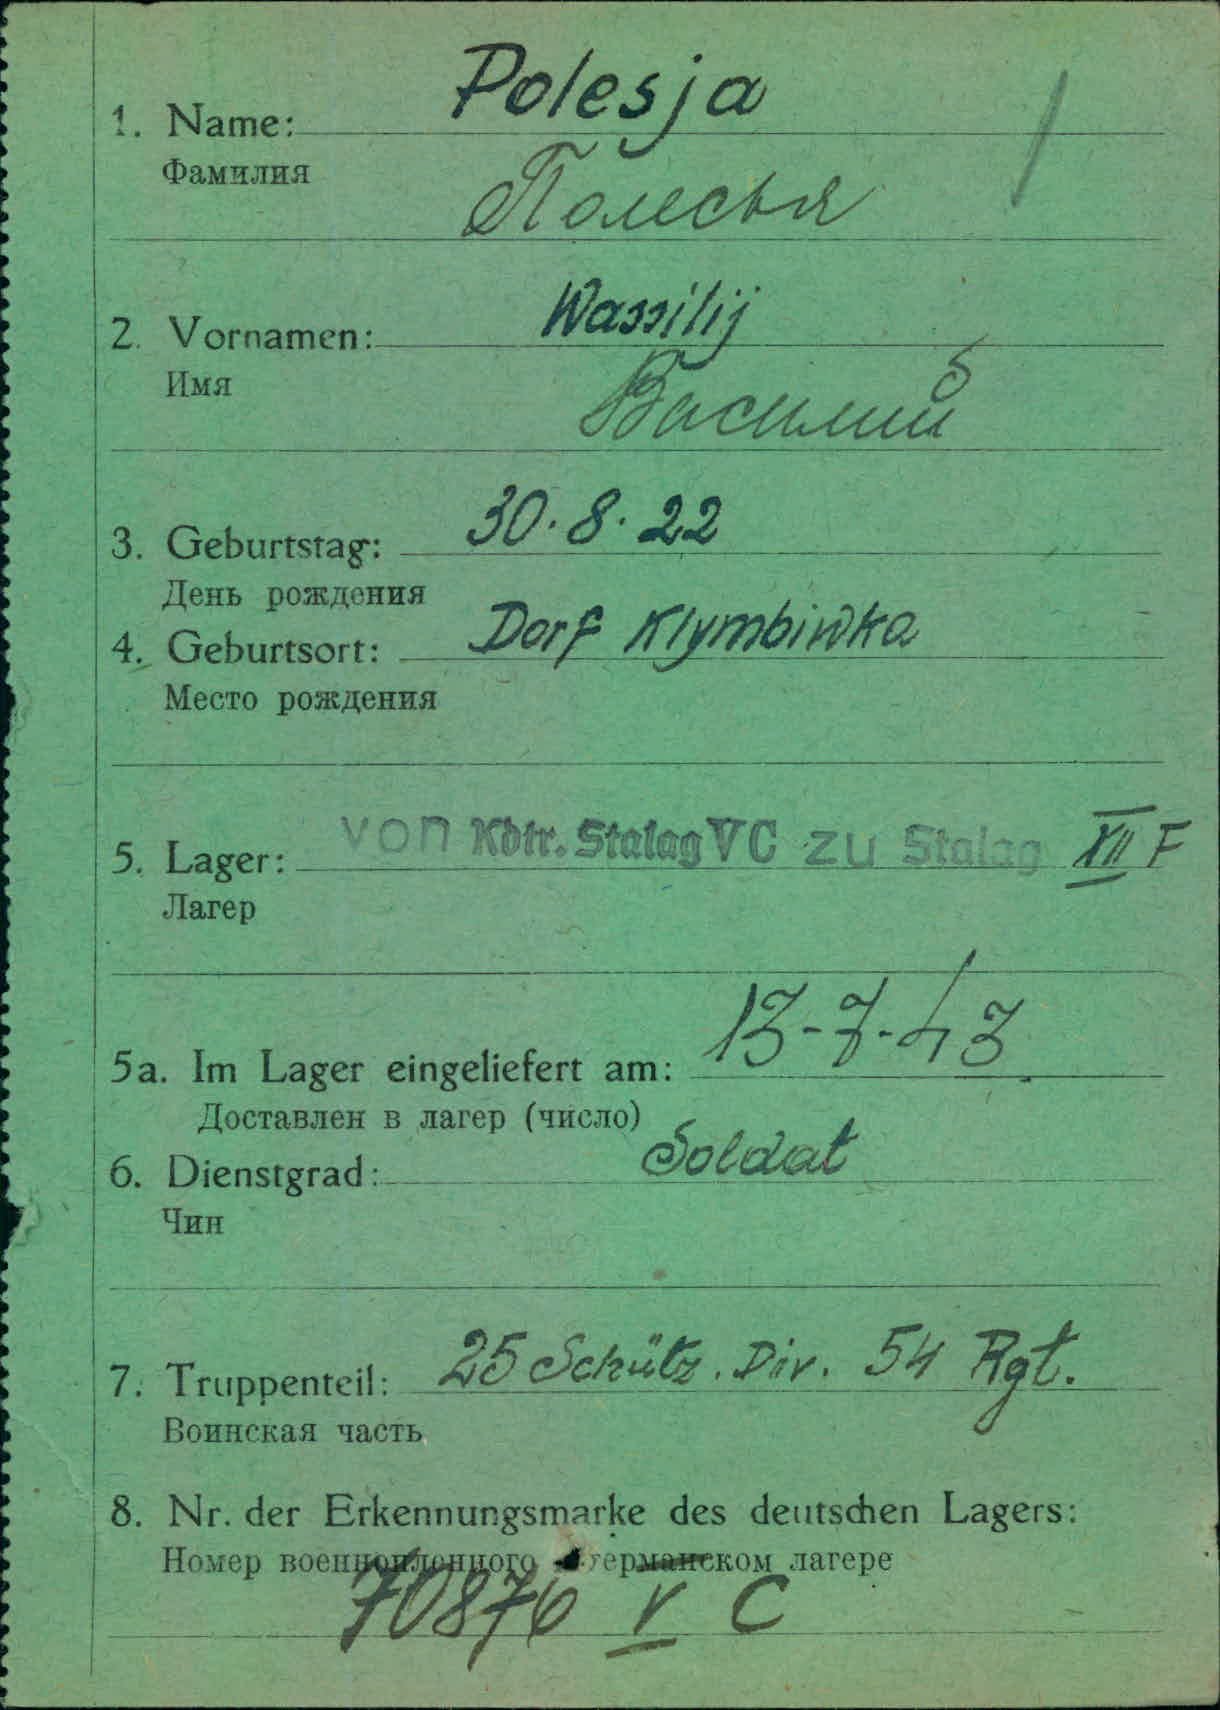 1. Name: Polesja
Фамилия
Полесья
2. Vornamen: Wassilij
Имя
Василий
3. Geburtstag: 30.8.22
День рождения
4. Geburtsort: Dorf Klymbiwka
Место рождения
5. Lager: von Kdtr. Stalag V C zu Stalag XII F
Лагер
5a. Im Lager eingeliefert am: 13-7-43
Доставлен в лагер (число)
6. Dienstgrad: Soldat
Чин
7. Truppenteil: 25 Schütz. Div. 54 Rgt.
Воинская часть
8. Nr. der Erkennungsmarke des deutschen Lagers:
Номер военнопленного в германском лагере
70876 V C